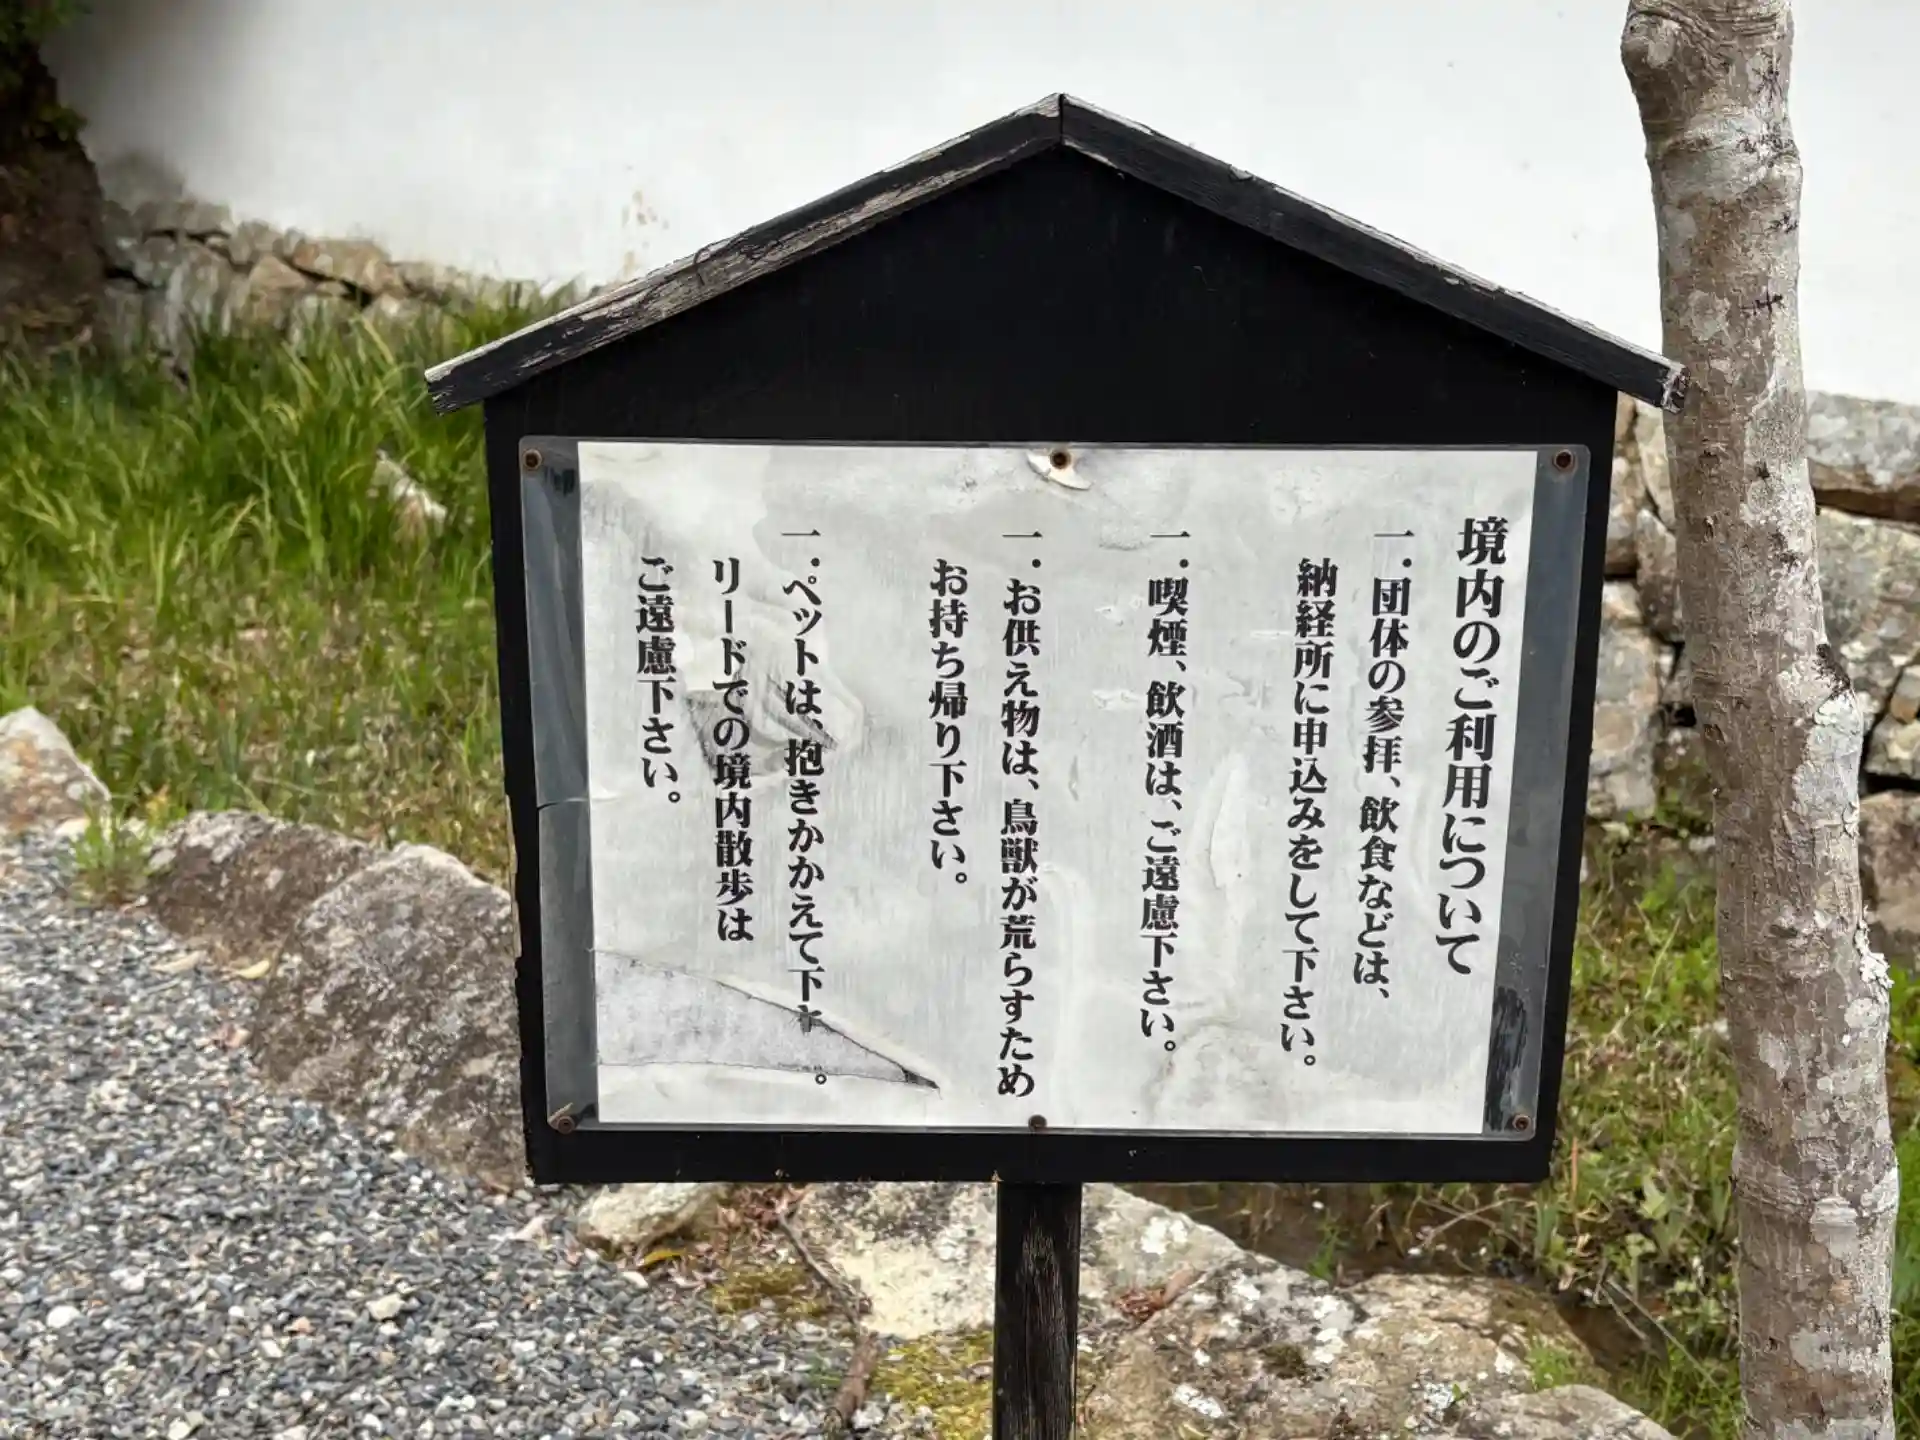 境内のご利用について
一．団体の参拝、飲食などは、
納経所に申込みをして下さい。
一．喫煙、飲酒は、ご遠慮下さい。
一．お供え物は、鳥獣が荒らすため
お持ち帰り下さい。
一．ペットは、抱きかかえて下
リードでの境内散歩は
ご遠慮下さい。